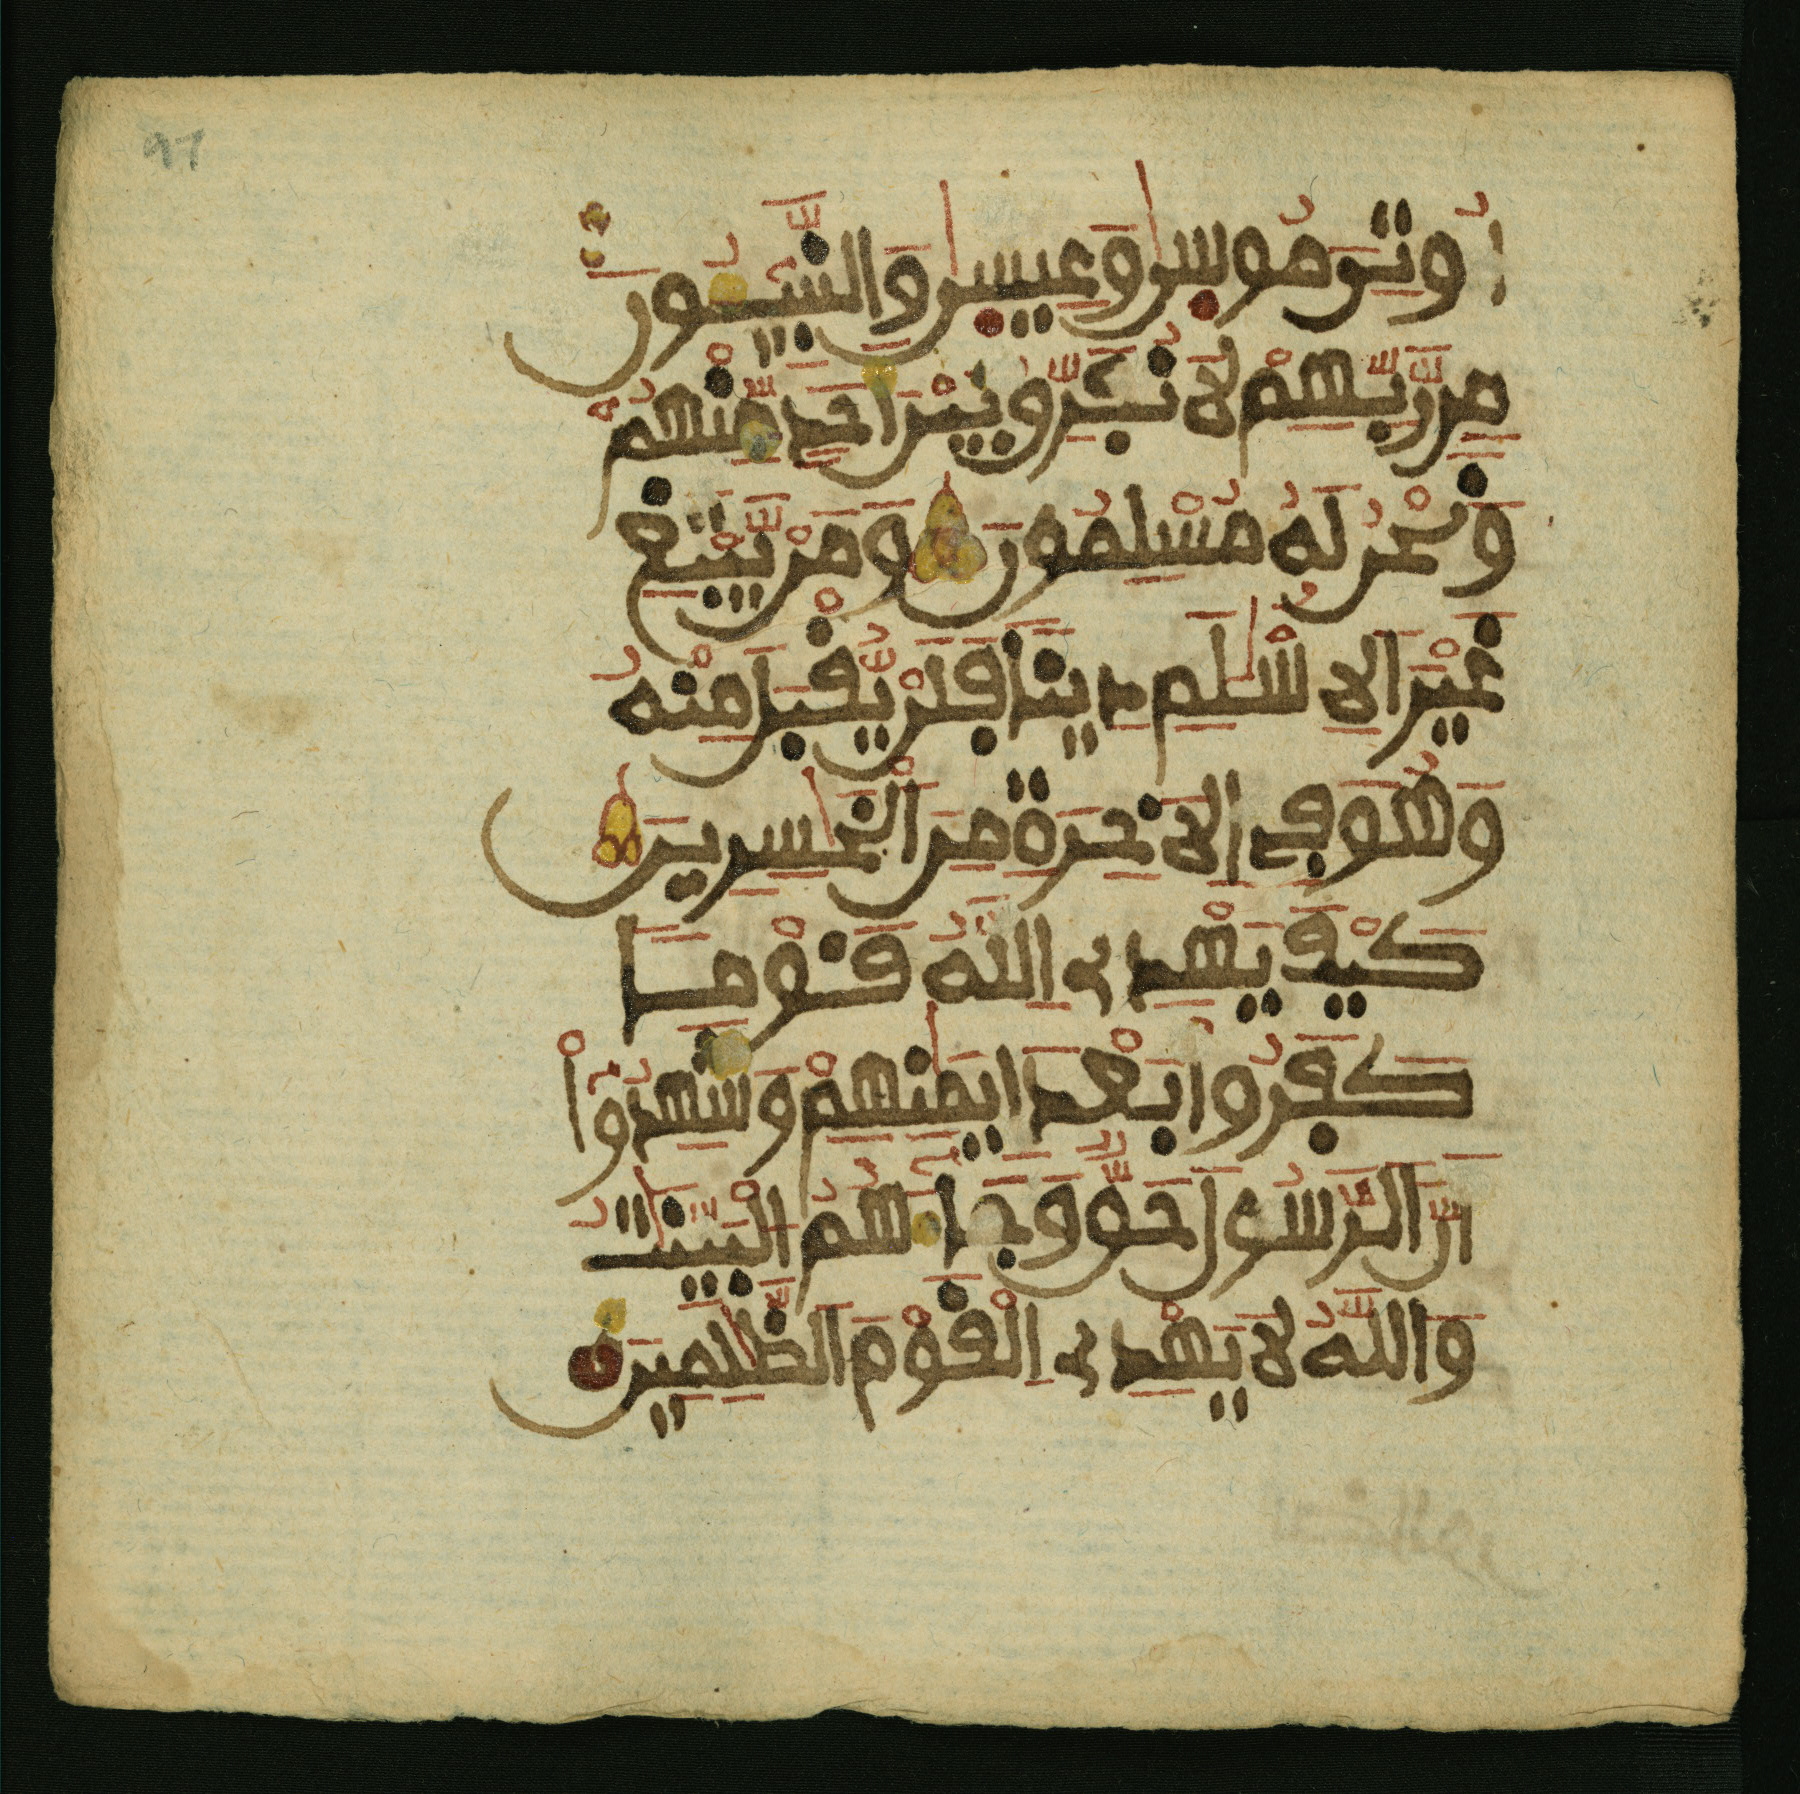 97
اُوتِىَ مُوسىٰ وَعِيسىٰ وَالنَّبِيـُٔونَ
مِن رَّبِّهِمْ لَا نُفَرِّقُ بَيْنَ أَحَدٍ مِّنْهُمُ
وَنَحْنُ لَهُ مُسْلِمُونَ وَمَنْ يَّبْتَغِ
غَيْرَ الِاسْلَٰمِ دِينًا فَلَنْ يُّقْبَلَ مِنْهُ
وَهُوَ فِى الَاخِرَةِ مِنَ الْخَٰسِرِينَ
كَيْفَ يَهْدِى اللَّهُ قَوْمًا
كَفَرُوا بَعْدَ إِيمَٰنِهِمْ وَشَهِدُوٓاْ
أَنَّ الرَّسُولَ حَقٌّ وَجَآءَهُمُ الْبَيِّنَٰتُ
وَاللَّهُ لَا يَهْدِى الْقَوْمَ الظَّٰلِمِينَ